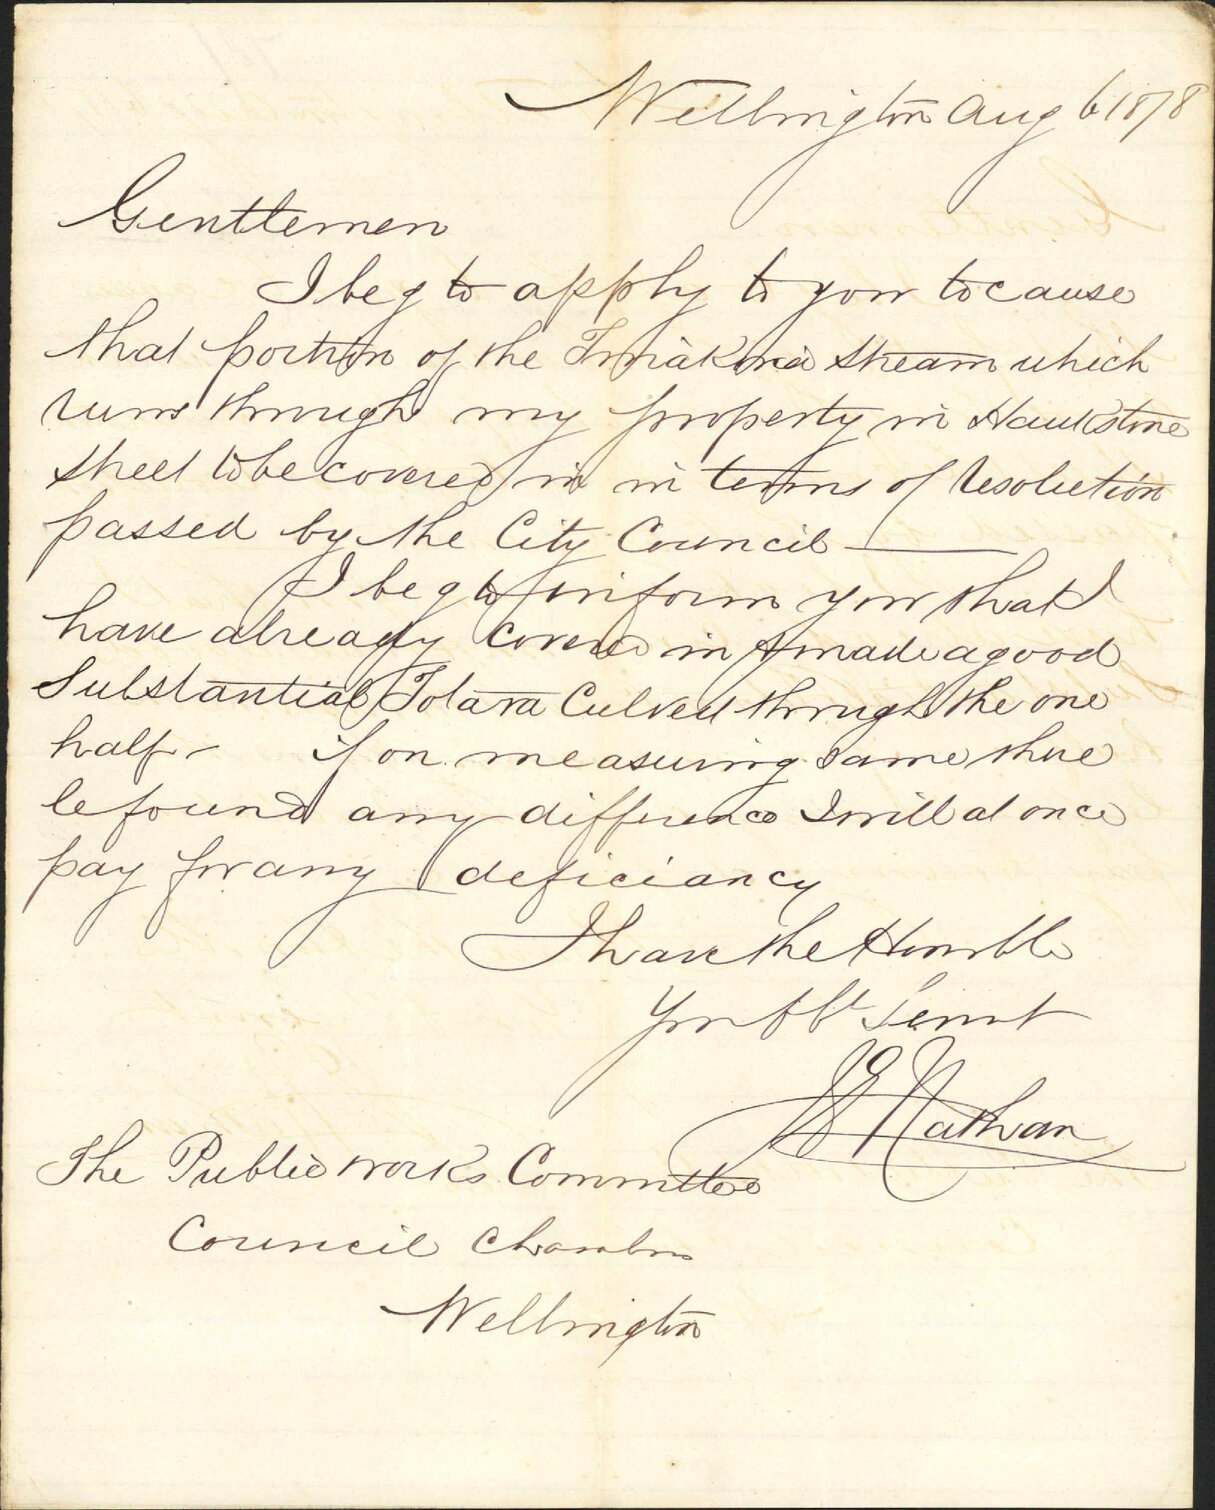 Wellington Aug 6 1878
Gentlemen
I beg to apply to you to cause
that portion of the Tinakori stream which
runs through my property in Hawkstone
street to be covered in in terms of resolution
passed by the City Council —
I beg to inform you that I
have already covered in & made a good
Substantial Totara Culvert through the one
half - if on measuring same there
be found any difference I will at once
pay for any deficiancy
I have the Honor to be
Your Obt Servt
Nathan
The Public Works Committee
Council Chambers
Wellington